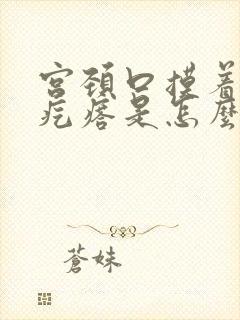 宮頚口摸着
疙瘩是怎麼
蒼妹